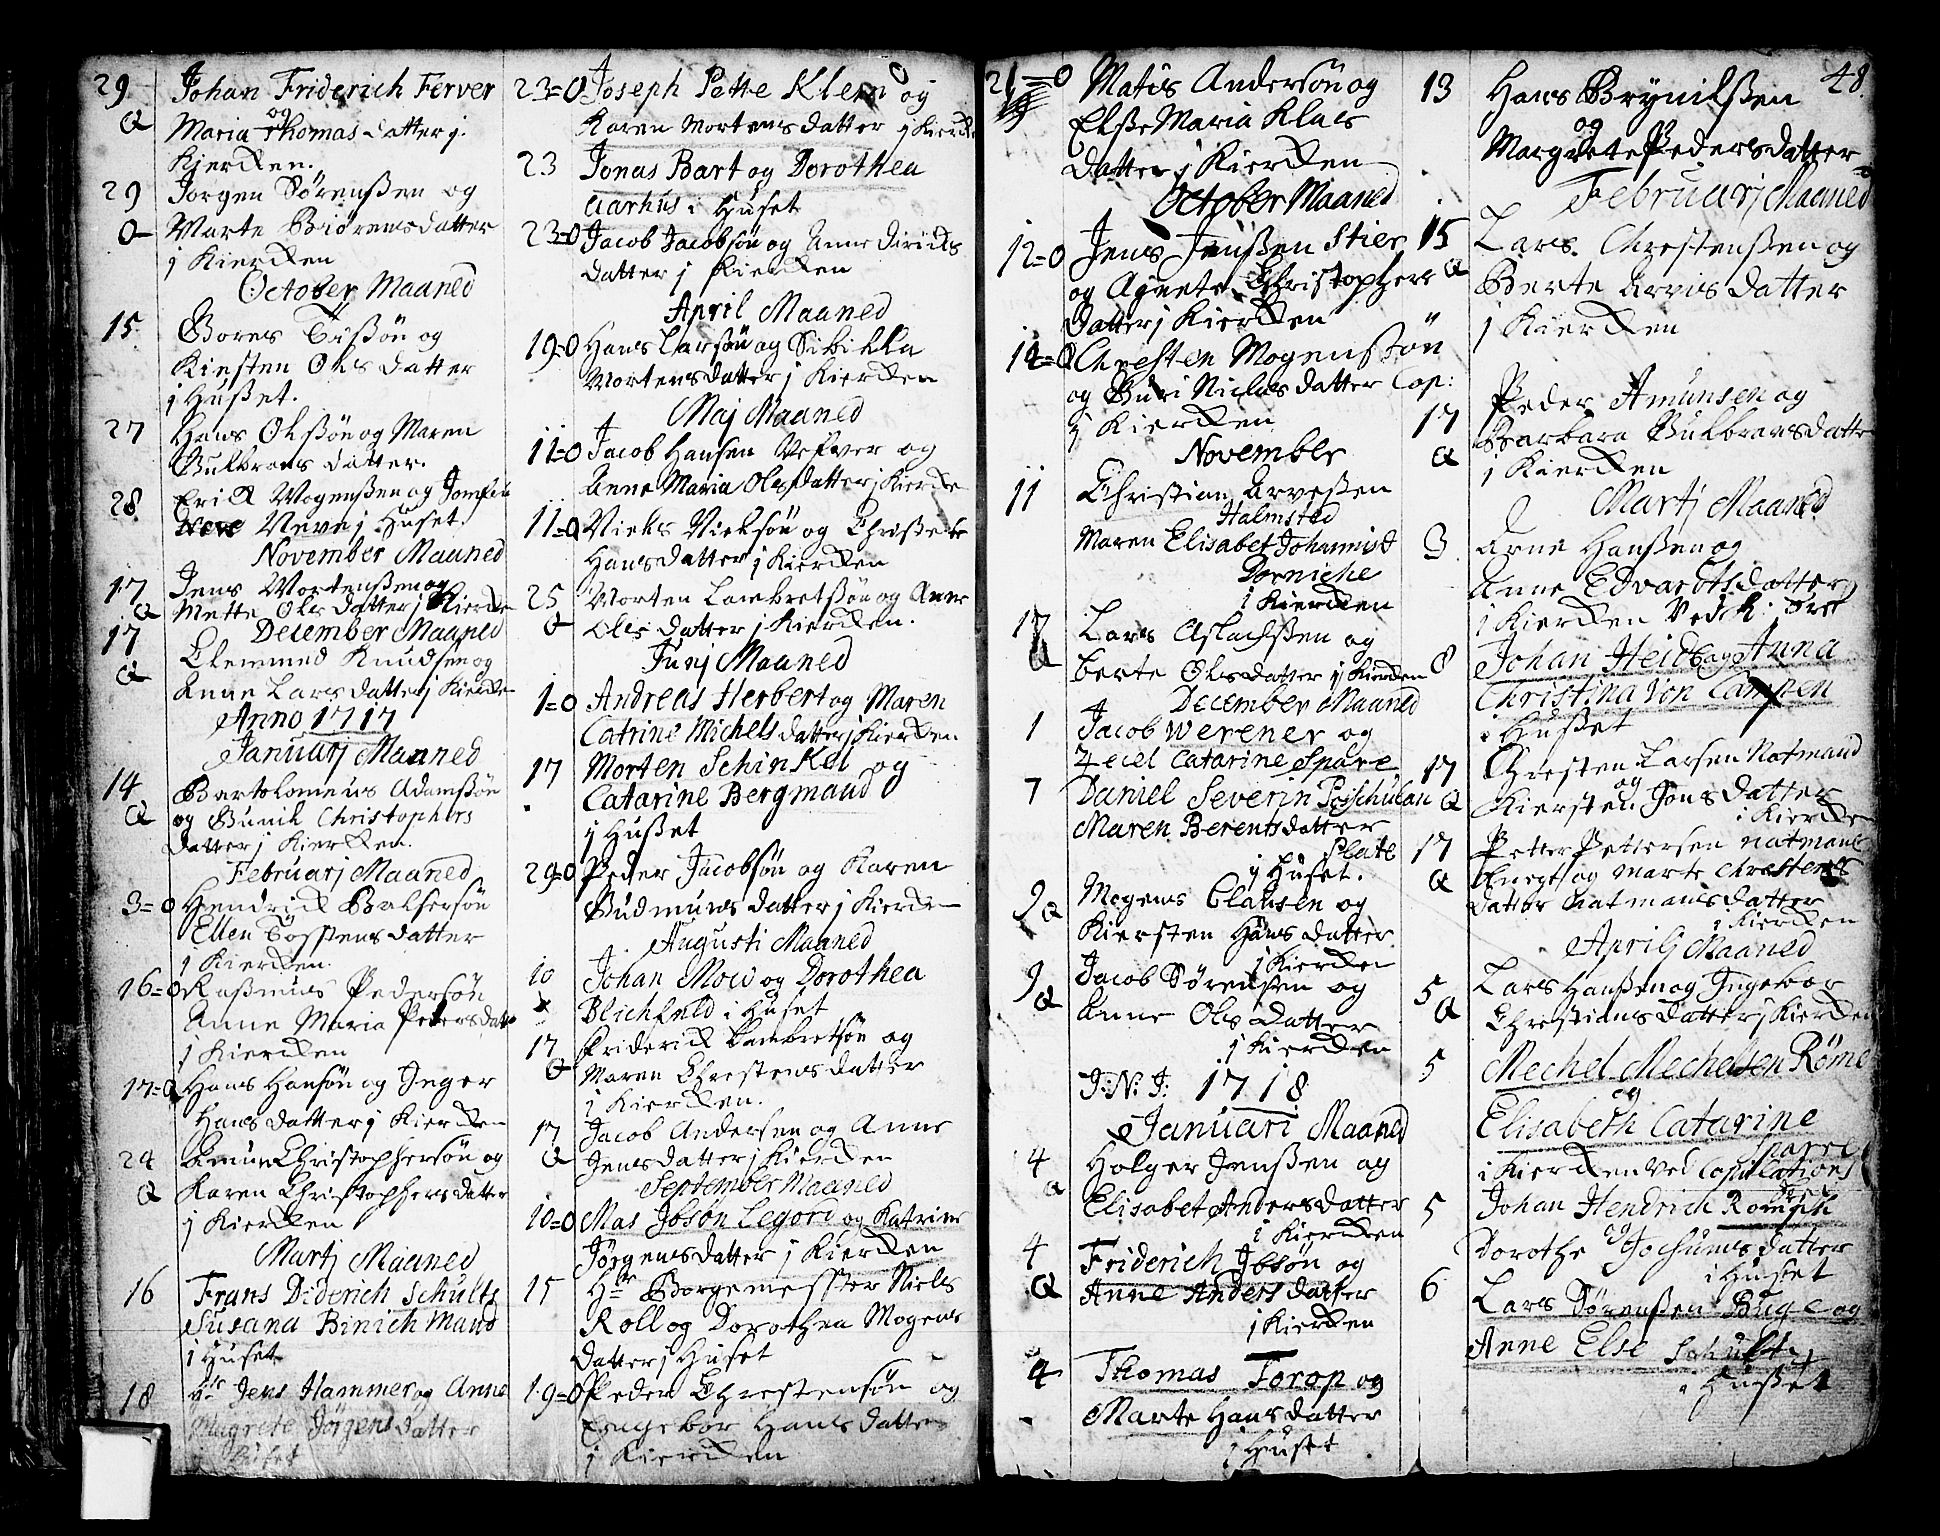 29 Johan Friderich Ferver
og
Maria Thomas datter j
Kiercken.
29 Jorgen Sørenßen og
Marte Biörensdatter
j Kiercken
October Maaned
15 og
Kiesten Ols datter
j Hußet.
27 Hans Olsßön og Maren
Gulbrans datter.
28 Erick Mogenßen og
j Huset.
November Maaned
17 Jens Mortenßen og
Mette Ols datter j Kiercken
December Maaned
17 Clemmed Knudsen og
Anne Lars datter j Kiercken
Anno 1717
Januarj Maaned
14 Bartolomeus Adamßön
og Gunild Christophers
datter j Kiercken.
Februarj Maaned
3=0 Hendrick Balsersön
Ellen datter
j Kiercken
16=0 Raßmus Pedersön
Anne Maria Peders datter
j Kiercken
17=0 Hans Hansön og Inger
Hans datter j Kiercken
24 Christophersön og
Karen Christophers datter
j Kiercken
Martj Maaned
16 Frans Diderich Schults
Susana Binich Mand
i Huset
18 Hr Jens Hammer og Anne
Magrete Jørgens datter
Huset
23=0 Joseph Pette Klein og
Karen Mortens datter j Kiercken
23 Jonas Bart og Dorothea
Aarhus i Huset
23=0 Jacob Jacobsön og Anne Diricks
datter j Kiercken
April Maaned
19=0 Hans Larsön og Sibilla
Mortens datter j Kiercken
Maj Maaned
11=0 Jacob Hansen Vefver og
Anne Maria Ols datter j Kiercken
11=0 Niels Nielsön og Christense
Hans datter j Kiercken
25 Morten Lambretsön og Anne
Ols datter j Kiercken.
Junj Maaned
1=0 Andreas Herbert og Maren
Catrine Michels datter j Kiercken
17 Morten Schinkel og
Catarine Bergmand
j Hußet
29=0 Peder Jacobsön og Karen
Gudmuns datter j Kiercken
Augusti Maaned
10 Johan Mow og Dorothea
Blichfeld i Huset
17 Friderick Lambretsön og
Maren Chrestens datter
j Kiercken.
17 Jacob Andersen og Anne
Jens datter j Kiercken
September Maaned
10=0 Mas Ibsön Legord og Katrine
Jørgens datter j Kiercken
15 Hr Borgemester Niels
Roll og Dorothea Mogens
datter j Huset
19=0 Peder Chrestensön og
Engebor Hans datter
j Kiercken
21=0 Matis Andersön og
Elsße Maria Klaes
datter j Kiercken
October Maaned
12=0 Jens Jenßen Stier
og Agnete Christophers
datter j Kiercken
12=0 Chresten Mogensßön
og Guri Niclas datter Cop:
j Kiercken
November
11 Christian Arveßen
Halmsted
Maren Elisabet Johannist
Dorniche
i Kiercken
17 Lars Aslachsßen og
berte Ols datter j Kiercken
December Maaned
1 Jacob Werener og
Zeciel Catarine Spare
7 Daniel Severin
Maren Berents datter
Plate
j Huset.
9 Mogens Clausen og
Kiersten Hans datter
j Kiercken
9 Jacob Sørensßen og
Anne Ols datter
j Kiercken
J: N: J: 1718
Januari Maaned
4 Holger Jenßen og
Elisabet Anders datter
i Kiercken
4 Friderich Ibsön og
Anne Anders datter
j Kiercken
4 Thomas Torop og
Marte Hans datter
i Huset
48
13 Hans Brynilsßen
og
Margrete Peders datter
Februarj Maaned
15 Lars Chrestensßen og
Berte Arvis datter
j Kiercken
17 Peder Amunsen og
Barbara Gulbrans datter
j Kiercken
Martj Maaned
3 Arne Hanßen og
Anne Edvardts datter
i Kiercken
8 Johan Heide og Anna
Christina von Campen
i Hußet
17 Chresten Larsen Natmand
og
Kiersten Jons datter
i Kiercken
17 Petter Pettersen natmands
og Marte Chrestens
datter natmans datter
i Kiercken
Aprilj Maaned
5 Lars Hanßen og Ingebor
Christians datter j Kiercken
5 Mechel Mechelsen Röme
og
Elisabeth Catarine
Spare
i Kiercken ved Copulations
5 Johan Hendrich Romsh
og
Dorothe Jochums datter
i Huset
6 Lars Sørensßen Buge og
Anne Else Schult
i Hußet